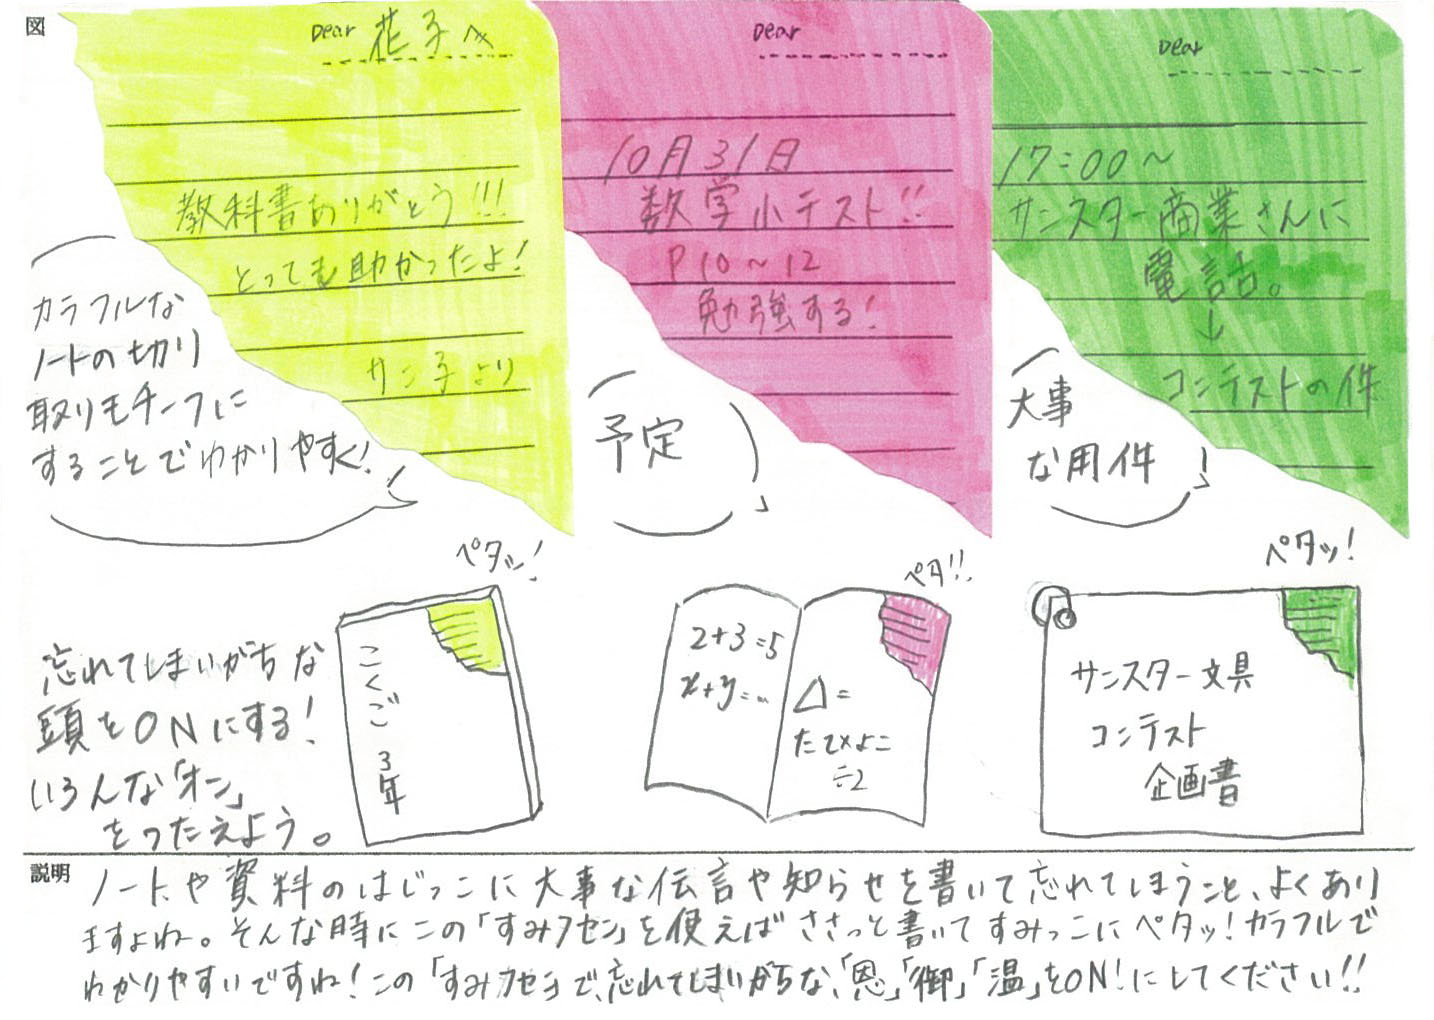 図
Dear 花子へ
教科書ありがとう!!!
とっても助かったよ!
サン子より
カラフルな
ノートの切り
取りモチーフに
することでわかりやすく!
Dear
10月31日
数学小テスト!!
P10~12
勉強する!
予定
Dear
17:00~
サンスター商業さんに
電話。
↓
コンテストの件
大事
な用件
ペタッ!
ペタ!!
ペタッ!
忘れてしまいがちな
頭をONにする!
いろんな「オン」
をつたえよう。
こくご 3年
2+3=5
x+y=…
△=
たて×よこ
÷2
サンスター文具
コンテスト
企画書
説明
ノートや資料のはじっこに大事な伝言や知らせを書いて忘れてしまうこと、よくあり
ますよね。そんな時にこの「すみフセン」を使えばささっと書いてすみっこにペタッ!カラフルで
わかりやすいですね!この「すみフセン」で、忘れてしまいがちな、「恩」「御」「温」をON!にしてください!!